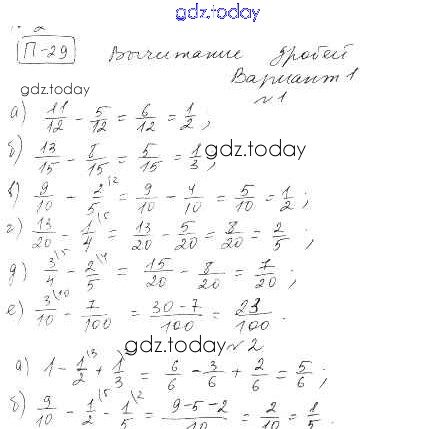 gdz.today
П-29 Вычитание дробей
gdz.today
Вариант 1
№1
а) 11/12 - 5/12 = 6/12 = 1/2;
б) 13/15 - 8/15 = 5/15 = 1/3;
gdz.today
в) 9/10 - 2/5 \2 = 9/10 - 4/10 = 5/10 = 1/2;
г) 13/20 - 1/4 \5 = 13/20 - 5/20 = 8/20 = 2/5;
д) 3/4 \5 - 2/5 \4 = 15/20 - 8/20 = 7/20;
е) 3/10 \10 - 7/100 = 30-7/100 = 23/100.
gdz.today №2
а) 1 - 1/2 \3 + 1/3 = 6/6 - 3/6 + 2/6 = 5/6;
б) 9/10 - 1/2 \5 - 1/5 \2 = 9-5-2/10 = 2/10 = 1/5.